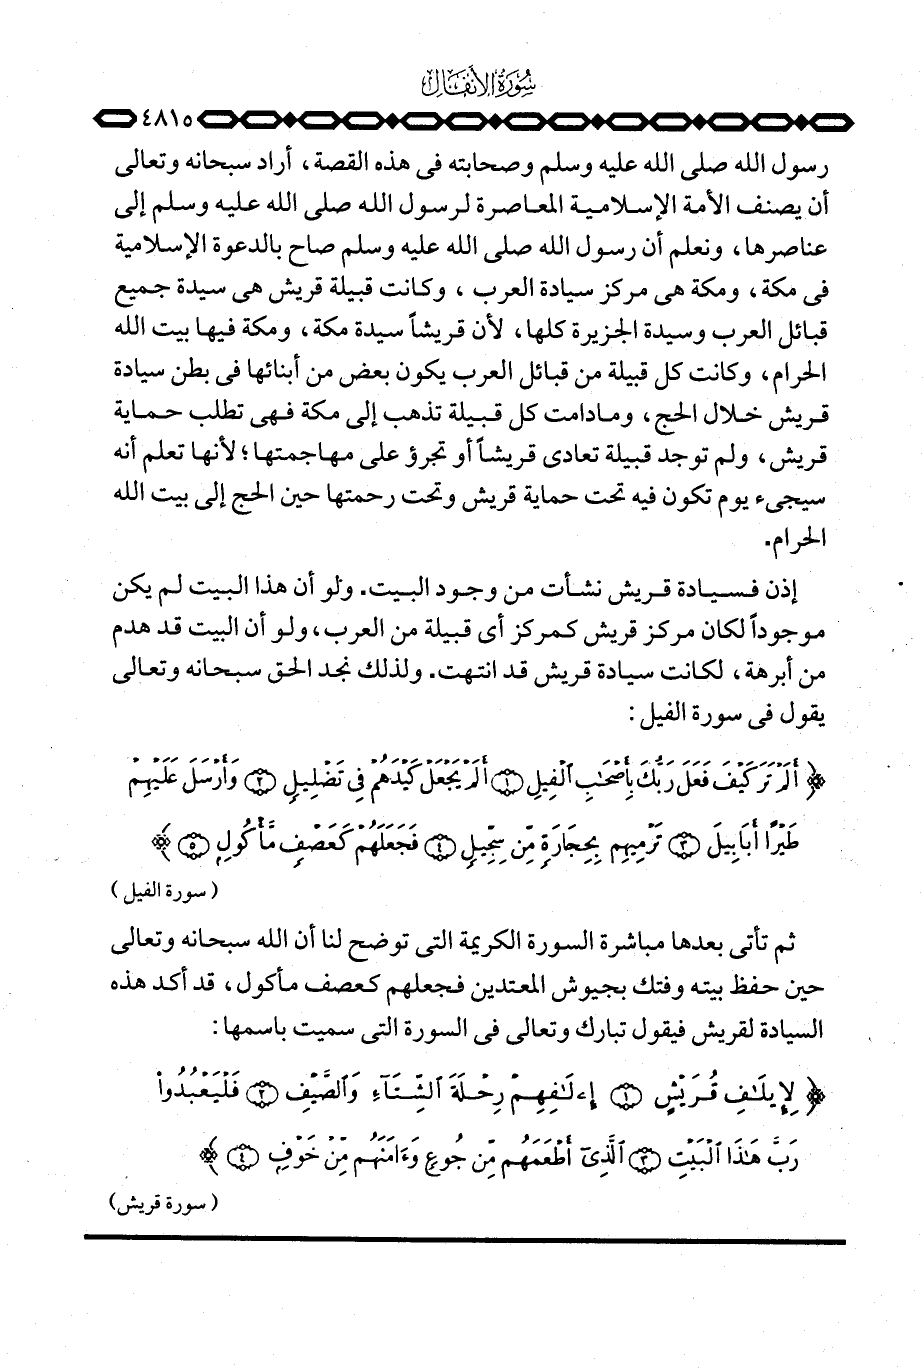 سُورَةُ الأَنفَالِ
٤٨١٥
رسول الله صلى الله عليه وسلم وصحابته فى هذه القصة، أراد سبحانه وتعالى
أن يصنف الأمة الإسلامية المعاصرة لرسول الله صلى الله عليه وسلم إلى
عناصرها، ونعلم أن رسول الله صلى الله عليه وسلم صاح بالدعوة الإسلامية
فى مكة، ومكة هى مركز سيادة العرب ، وكانت قبيلة قريش هى سيدة جميع
قبائل العرب وسيدة الجزيرة كلها، لأن قريشاً سيدة مكة، ومكة فيها بيت الله
الحرام، وكانت كل قبيلة من قبائل العرب يكون بعض من أبنائها فى بطن سيادة
قريش خلال الحج، ومادامت كل قبيلة تذهب إلى مكة فهى تطلب حماية
قريش، ولم توجد قبيلة تعادى قريشاً أو تجرؤ على مهاجمتها؛ لأنها تعلم أنه
سيجىء يوم تكون فيه تحت حماية قريش وتحت رحمتها حين الحج إلى بيت الله
الحرام.
إذن فسيادة قريش نشأت من وجود البيت. ولو أن هذا البيت لم يكن
موجوداً لكان مركز قريش كمركز أى قبيلة من العرب، ولو أن البيت قد هدم
من أبرهة، لكانت سيادة قريش قد انتهت. ولذلك نجد الحق سبحانه وتعالى
يقول فى سورة الفيل:
﴿ أَلَمْ تَرَ كَيْفَ فَعَلَ رَبُّكَ بِأَصْحَٰبِ ٱلْفِيلِ ۝١ أَلَمْ يَجْعَلْ كَيْدَهُمْ فِى تَضْلِيلٍ ۝٢ وَأَرْسَلَ عَلَيْهِمْ
طَيْرًا أَبَابِيلَ ۝٣ تَرْمِيهِم بِحِجَارَةٍ مِّن سِجِّيلٍ ۝٤ فَجَعَلَهُمْ كَعَصْفٍ مَّأْكُولٍ ۝٥ ﴾
( سورة الفيل )
ثم تأتى بعدها مباشرة السورة الكريمة التى توضح لنا أن الله سبحانه وتعالى
حين حفظ بيته وفتك بجيوش المعتدين فجعلهم كعصف مأكول، قد أكد هذه
السيادة لقريش فيقول تبارك وتعالى فى السورة التى سميت باسمها:
﴿ لِإِيلَٰفِ قُرَيْشٍ ۝١ إِۦلَٰفِهِمْ رِحْلَةَ ٱلشِّتَآءِ وَٱلصَّيْفِ ۝٢ فَلْيَعْبُدُوا۟
رَبَّ هَٰذَا ٱلْبَيْتِ ۝٣ ٱلَّذِىٓ أَطْعَمَهُم مِّن جُوعٍ وَءَامَنَهُم مِّنْ خَوْفٍ ۝٤ ﴾
( سورة قريش )